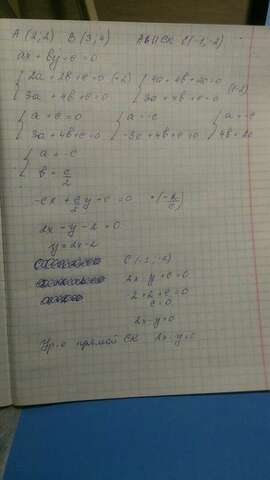 A (2;2) B (3;4) AB || CK C(-1;-2)
ax + by + c = 0
{ 2a + 2b + c = 0 (·2) { 4a + 4b + 2c = 0
{ 3a + 4b + c = 0 { 3a + 4b + c = 0
{ a + c = 0 { a = -c { a = -c
{ 3a + 4b + c = 0 { -3c + 4b + c = 0 { 4b = 2c
{ a = -c
{ b = c/2
-cx + c/2 y + c = 0
2x - y - 2 = 0
y = 2x - 2
C (-1; -2)
2x - y + c = 0
-2 + 2 + c = 0
c = 0
2x - y = 0
Ур-е прямой CK 2x - y = 0